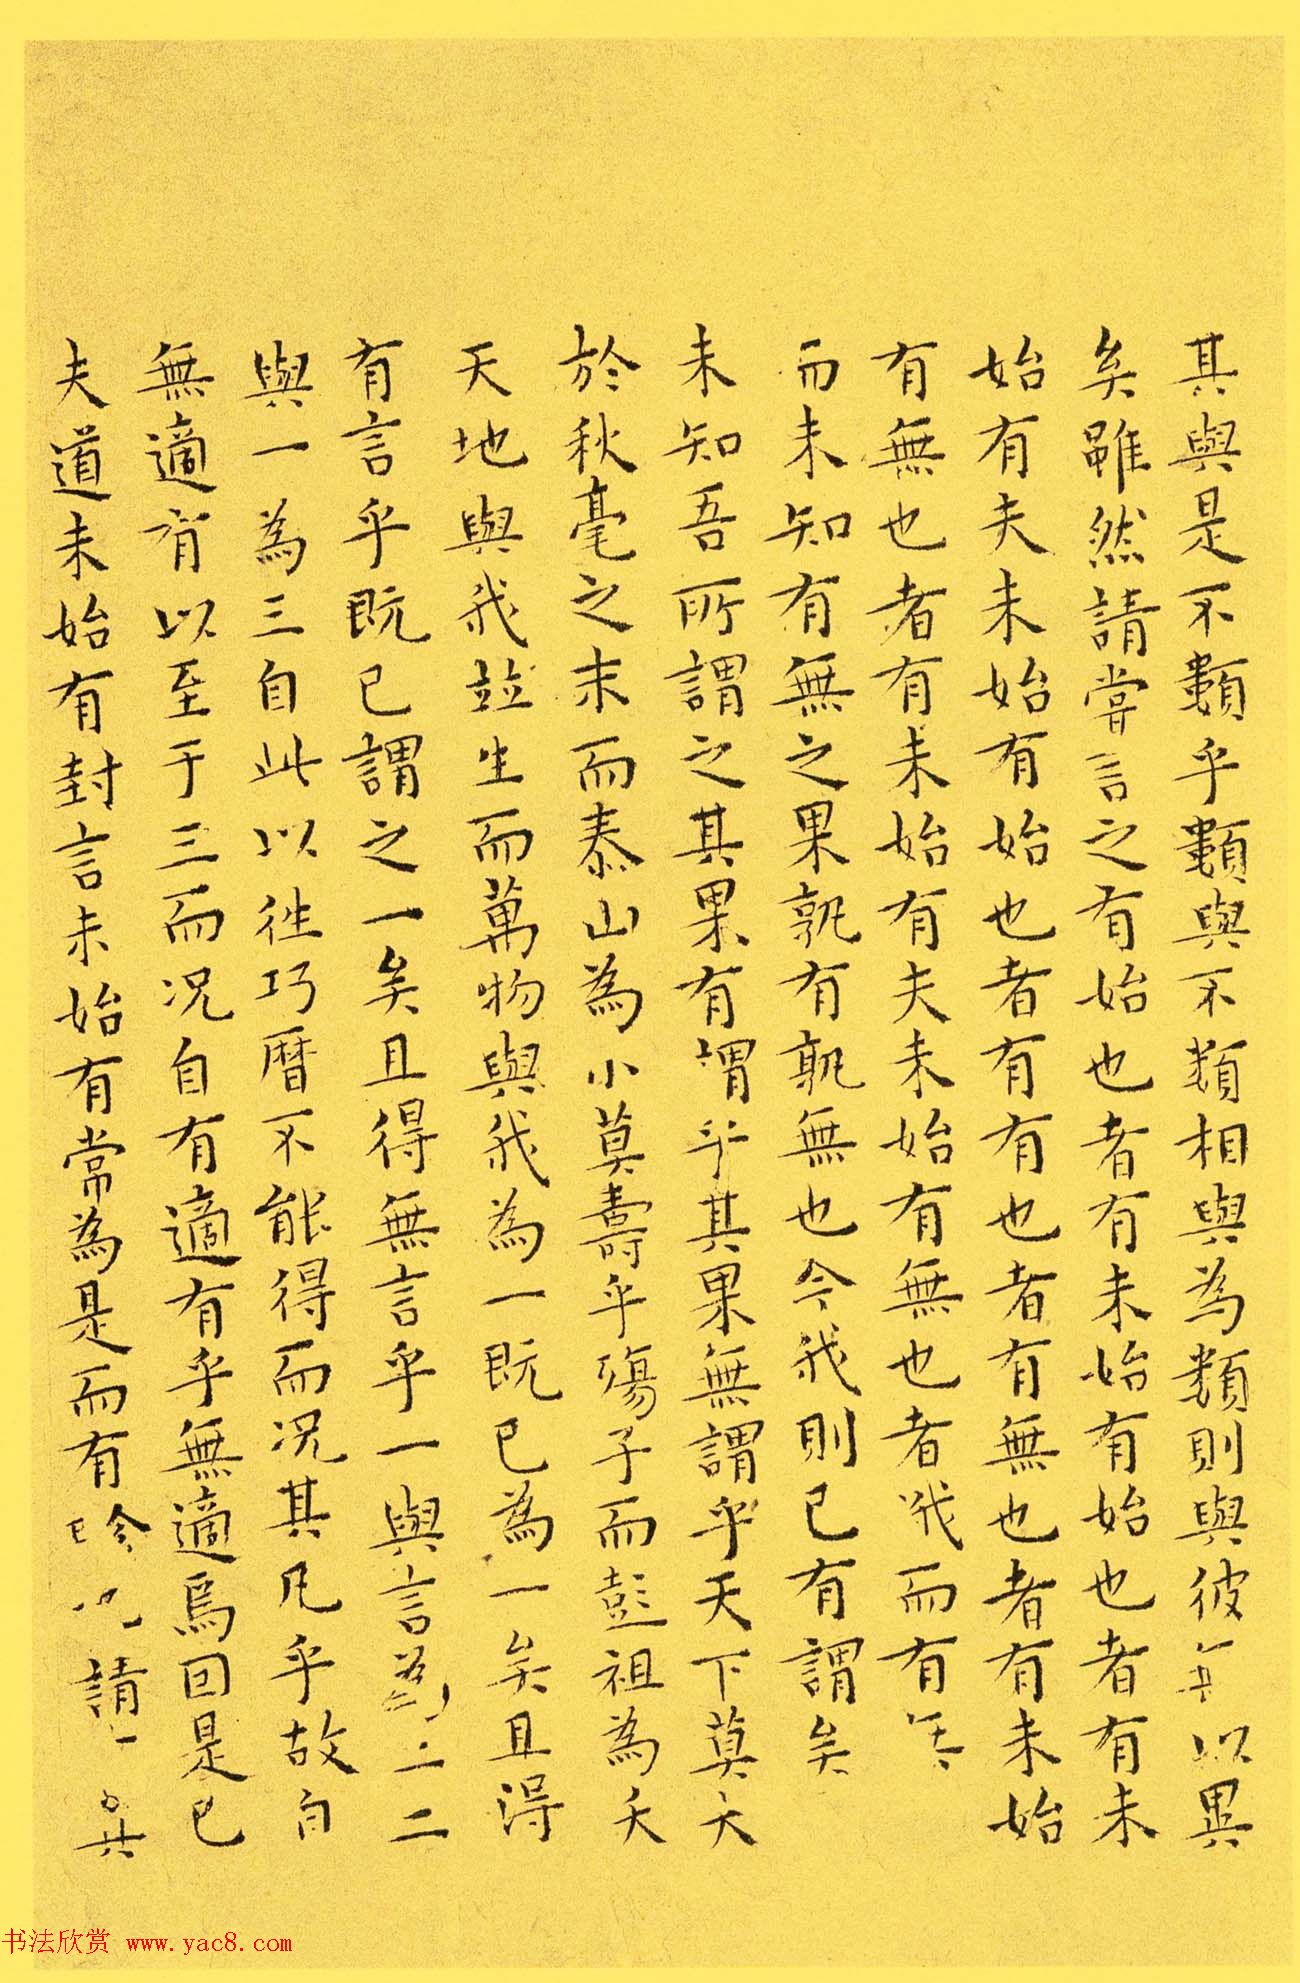 其與是不類乎類與不類相與為類則與彼無以異
矣雖然請嘗言之有始也者有未始有始也者有未
始有夫未始有始也者有有也者有無也者有未始
有無也者有未始有夫未始有無也者我而有無
而未知有無之果孰有孰無也今我則已有謂矣
未知吾所謂之其果有謂乎其果無謂乎天下莫大
於秋毫之末而泰山為小莫壽乎殤子而彭祖為夭
天地與我並生而萬物與我為一既已為一矣且得
有言乎既已謂之一矣且得無言乎一與言為二二
與一為三自此以往巧曆不能得而況其凡乎故自
無適有以至于三而況自有適有乎無適焉因是已
夫道未始有封言未始有常為是而有畛請
书法欣赏 www.yac8.com